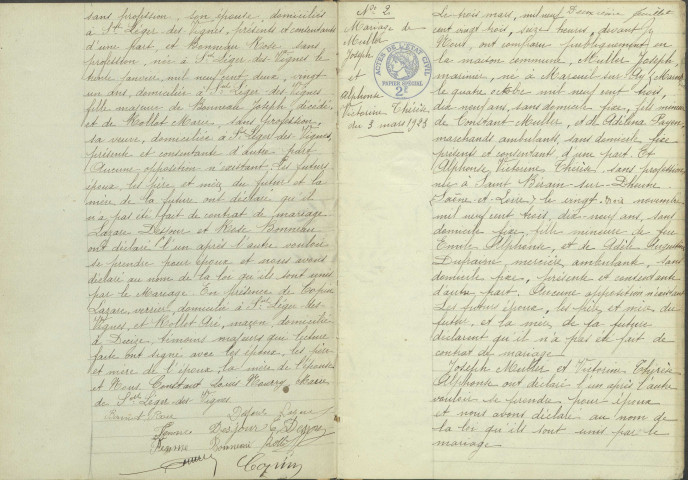 sans profession, son épouse, domiciliés
à St Léger des Vignes, présents et consentants
d'une part, et Bonneau Rose, sans
profession, née à St Léger des Vignes le
trente janvier, mil neuf cent deux, vingt
un ans, domiciliée à St Léger des Vignes
fille majeure de Bonneau Joseph décédé
et de Rollot Marie, sans profession,
sa veuve, domiciliée à St Léger des Vignes,
présente et consentante d'autre part
Aucune opposition n'existant, les futurs
époux, les père et mère du futur et la
mère de la future ont déclaré qu'il
n'a pas été fait de contrat de mariage
Lazare Desjour et Rose Bonneau
ont déclaré l'un après l'autre vouloir
se prendre pour époux et nous avons
déclaré au nom de la loi qu'ils sont unis
par le Mariage. En présence de
Lazare, verrier, domicilié à St Léger des
Vignes, et Rollot, maçon, domicilié
à Decize, témoins majeurs qui lecture
faite ont signé avec les époux, les père
et mère de l'époux, la mère de l'épouse
et Nous Constant Louis, Maire
de St Léger des Vignes
Desjour
Bonneau
No 2
Mariage de
Muller
Joseph
et
Alphonse
Victorine Thérèse
du 3 mars 1923
ACTES DE L'ÉTAT CIVIL
PAPIER SPÉCIAL
2F
Deuxième feuillet
Le trois mars, mil neuf
cent vingt trois, seize heures, devant
Nous, ont comparu publiquement en
la maison commune, Muller Joseph,
né à Mareuil sur Ay (Marne)
le quatre octobre mil neuf cent trois,
dix neuf ans, sans domicile fixe, fils mineur
de Constant Muller, et de Adelina
marchands ambulants, sans domicile fixe
présents et consentants d'une part. Et
Alphonse Victorine Thérèse, sans profession
née à Saint Bérain sur Dheune
(Saône et Loire) le vingt trois novembre
mil neuf cent trois, dix neuf ans, sans
domicile fixe, fille mineure de feu
Emile Alphonse, et de Adèle Augustine
mercière ambulante, sans
domicile fixe, présente et consentante
d'autre part. Aucune opposition n'existant
Les futurs époux, les père et mère du
futur, et la mère de la future
déclarent qu'il n'a pas été fait de
contrat de mariage
Joseph Muller et Victorine Thérèse
Alphonse ont déclaré l'un après l'autre
vouloir se prendre pour époux
et nous avons déclaré au nom de
la loi qu'ils sont unis par le
mariage